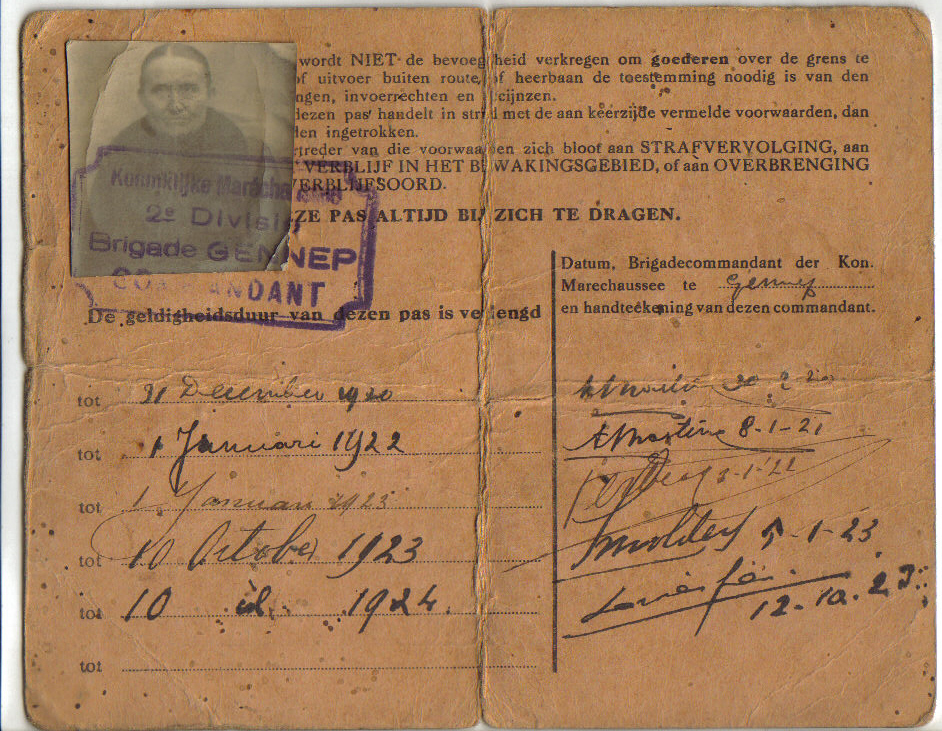 wordt NIET de bevoegdheid verkregen om goederen over de grens te
of uitvoer buiten route, of heerbaan de toestemming noodig is van den
ngen, invoerrechten en accijnzen.
dezen pas handelt in strijd met de aan keerzijde vermelde voorwaarden, dan
den ingetrokken.
rtreder van die voorwaarden zich bloot aan STRAFVERVOLGING, aan
VERBLIJF IN HET BEWAKINGSGEBIED, of aan OVERBRENGING
VERBLIJFSOORD.
ZE PAS ALTIJD BIJ ZICH TE DRAGEN.
Koninklijke Marechaussee
2e Divisie
Brigade GENNEP
COMMANDANT
De geldigheidsduur van dezen pas is verlengd
Datum, Brigadecommandant der Kon.
Marechaussee te Gennep
en handteekening van dezen commandant.
tot 31 December 1920
tot 1 Januari 1922
8-1-21
tot 1 Januari 1923
3-1-22
tot 10 October 1923
5-1-23
tot 10 1924.
12-10-23
tot